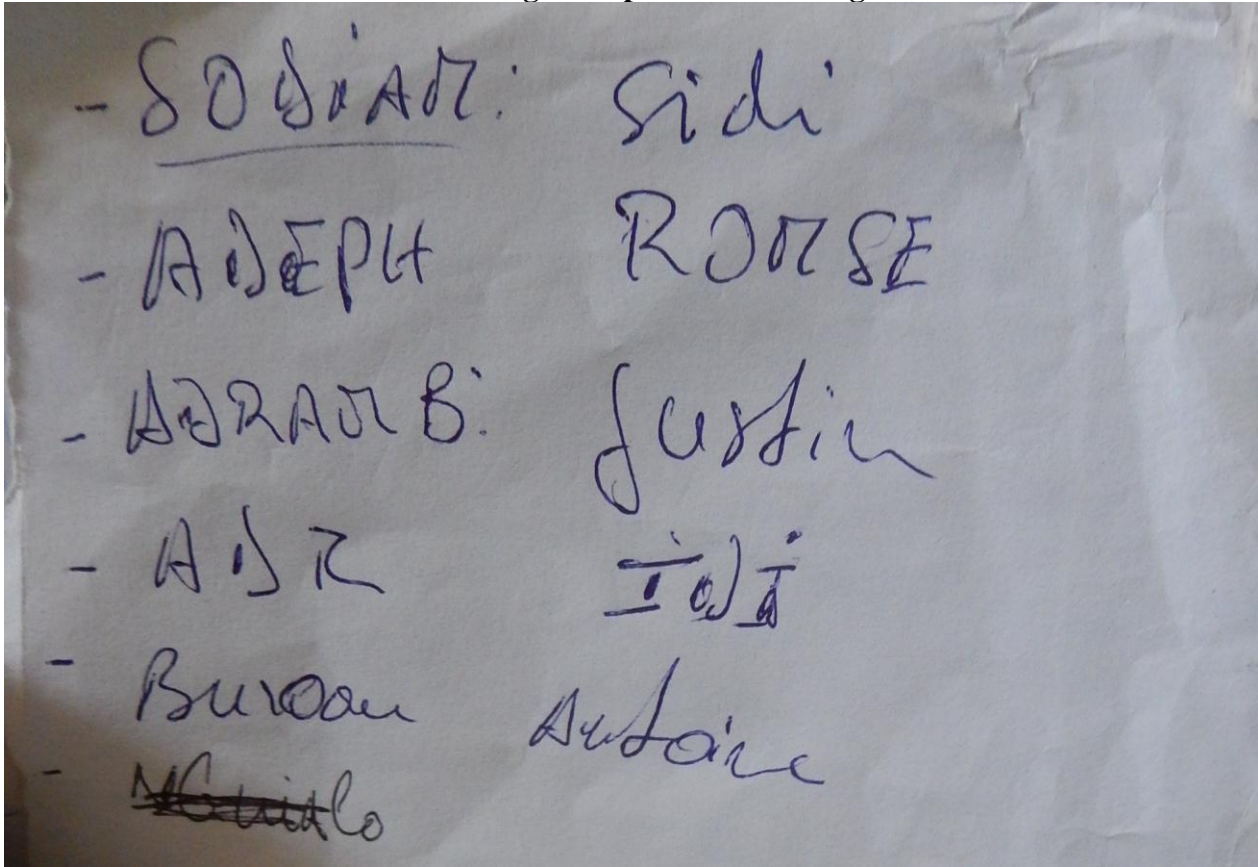 - SODIAM: Sidi
- ADEPH ROMSE
- ADRAM B: Justin
- ADR IDI
- Bureau Antoine
-